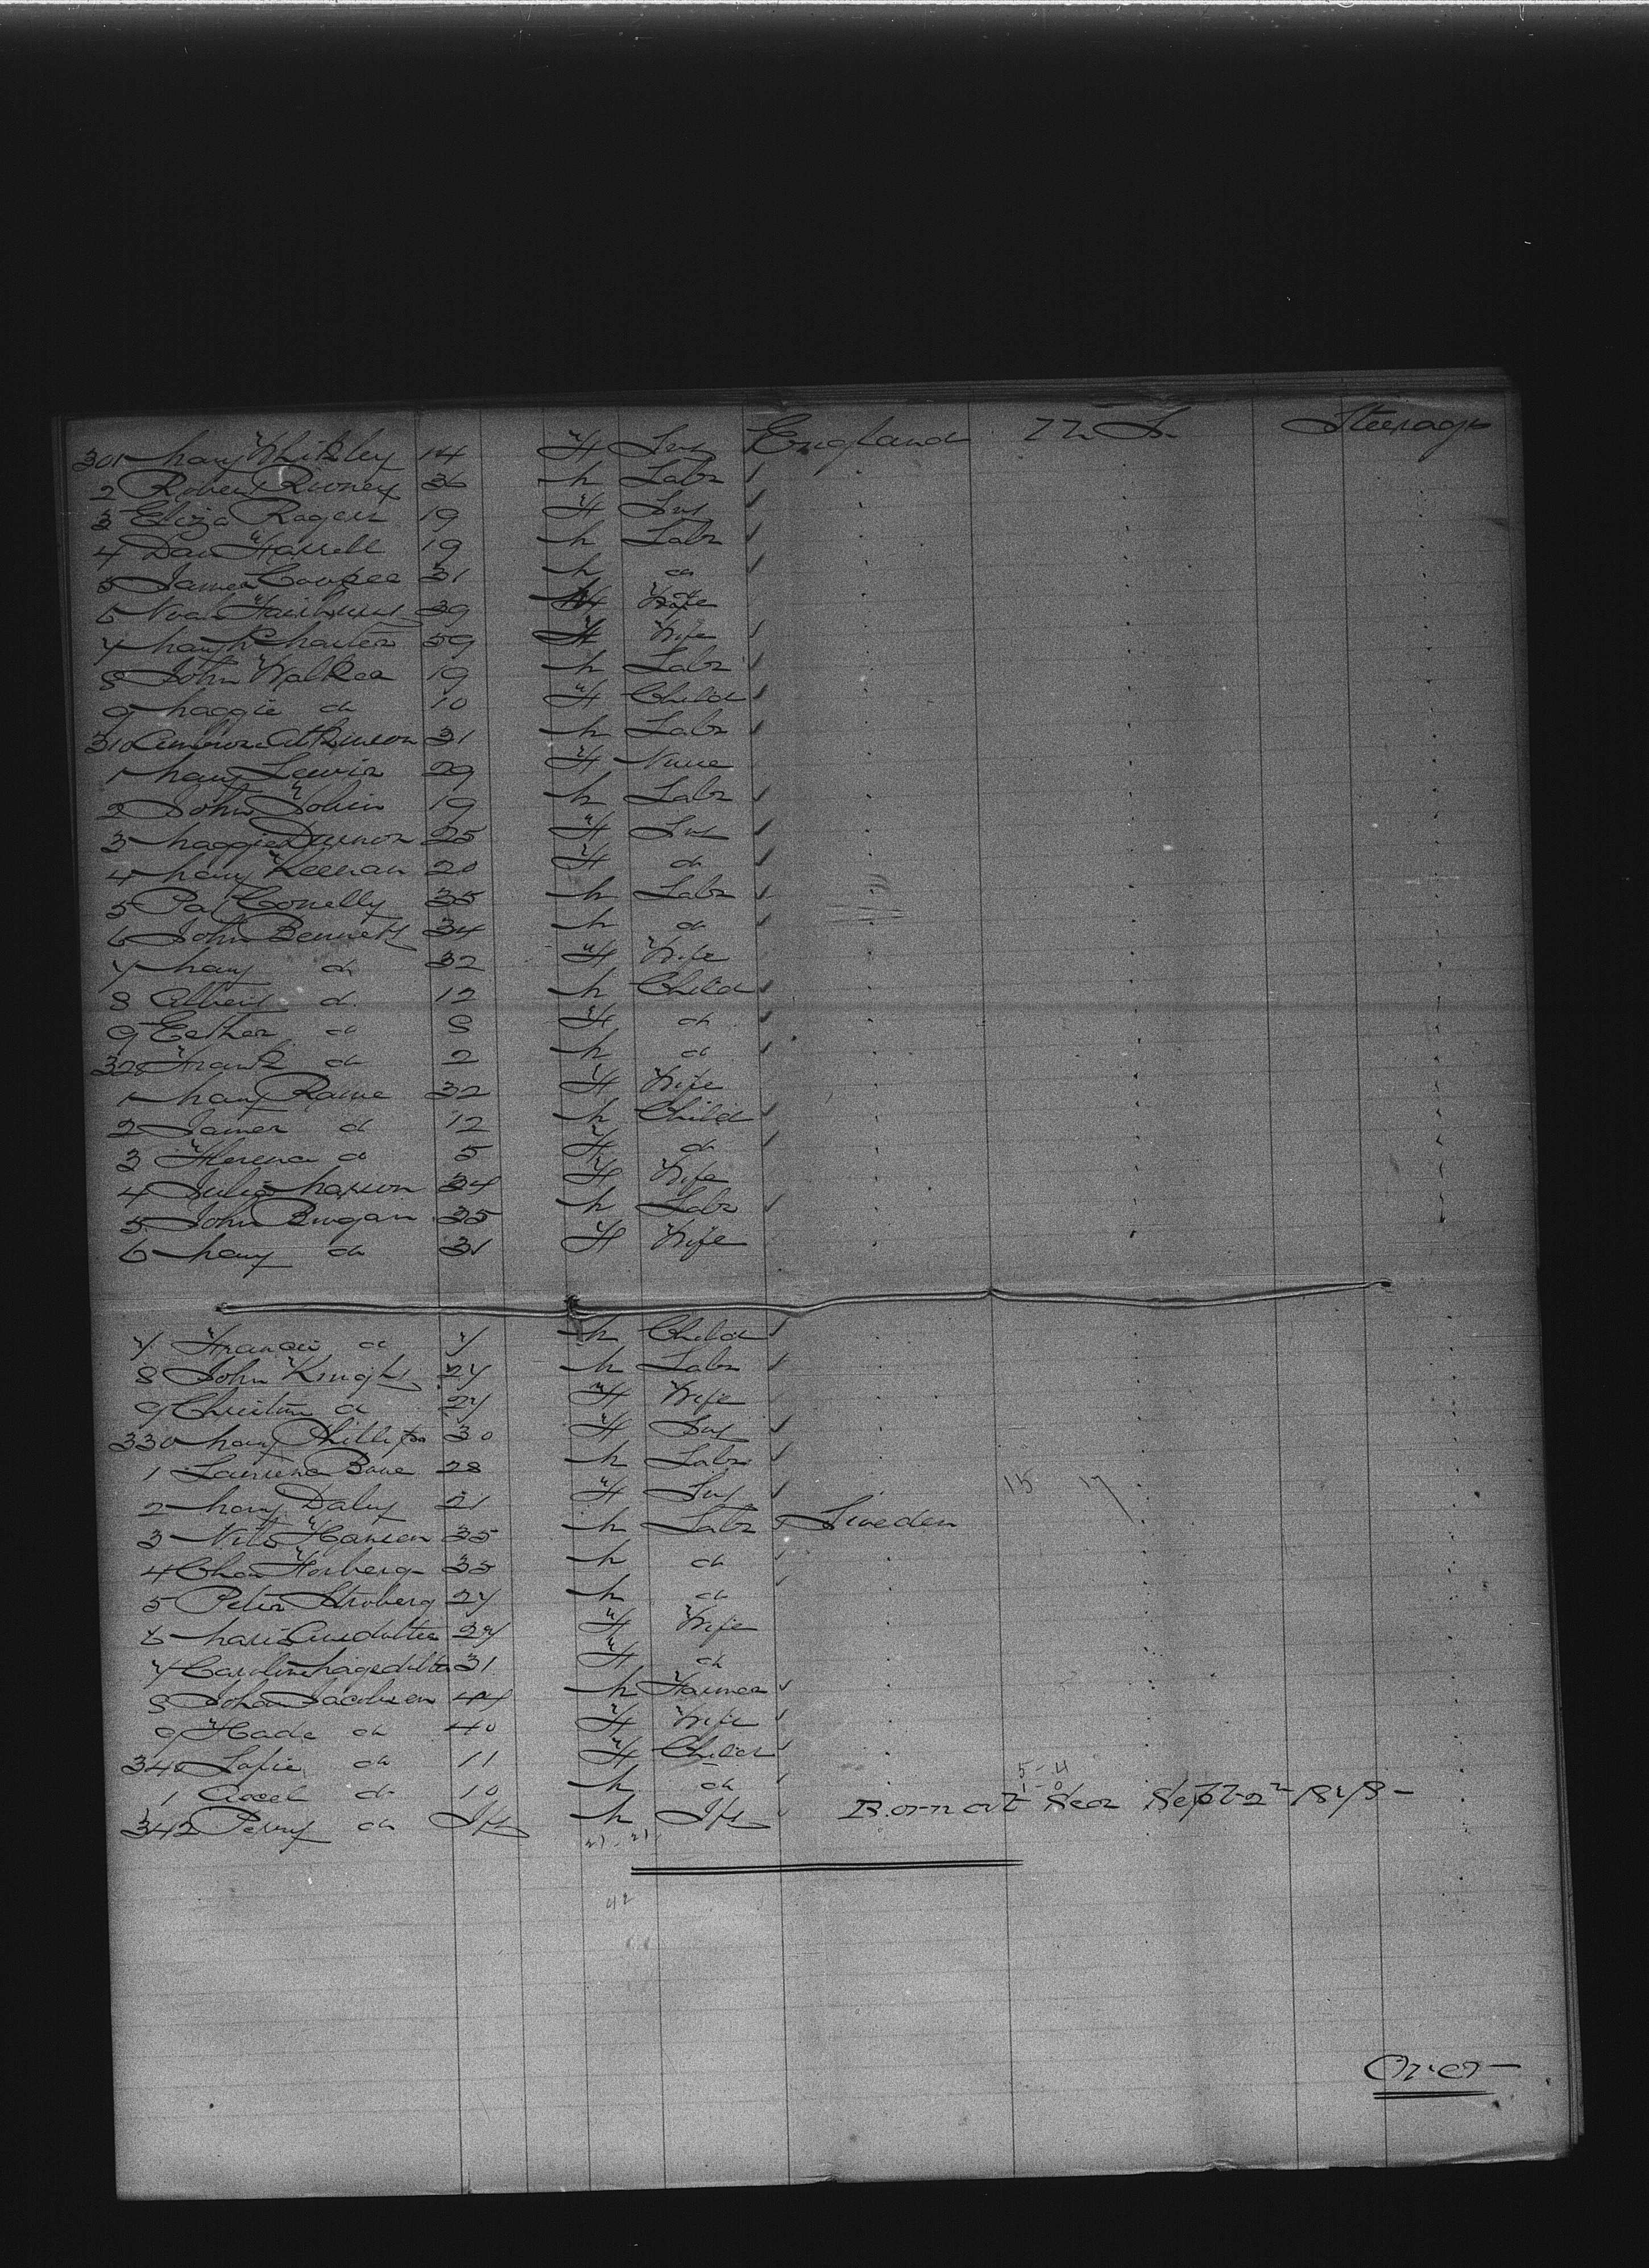 301 Mary Whitley 14 F Srv England U.S. Steerage
2 Robert Rooney 36 M Labr
3 Eliza Rogers 19 F Srv
4 Dan Farrell 19 M Labr
5 James Cowpee 31 M do
6 Noah 39 Wife
7 Mary 59 F Wife
8 John Walker 19 M Labr
9 Maggie do 10 F Child
310 Ambrose Atkinson 31 M Labr
1 Mary Lewis 29 F Nurse
2 John Tobin 19 M Labr
3 Maggie Dunnon 25 F Srv
4 Mary Keenan 20 F do
5 Pat Conelly 35 M Labr
6 John Bennett 34 M do
7 Mary do 32 F Wife
8 Albert do 12 M Child
9 Esther do 8 F do
320 Frank do 2 M do
1 Mary Rowe 32 F Wife
2 James do 12 M Child
3 Florence do 5 F do
4 Julia Marson 34 F Wife
5 John Brogan 35 M Labr
6 Mary do 31 F Wife
7 Francis do 7 M Child
8 John Knight 27 M Labr
9 Christina do 27 F Wife
330 Mary Phillips 30 F Srv
1 Laurence Bowe 28 M Labr
2 Mary Daley 21 F Srv 15 17
3 Nils Hansen 35 M Labr Sweden
4 Chas Forberg 35 M do
5 Peter Stroberg 27 M do
6 Maria 27 F Wife
7 Caroline 31 F do
8 Johan Jacobsen 44 M Farmer
9 Hade do 40 F Wife
340 Sofie do 11 F Child
1 Axel do 10 M do
342 Perry do Inf M Inf Born at Sea Sept 2nd 1878
21 - 21
42
Over